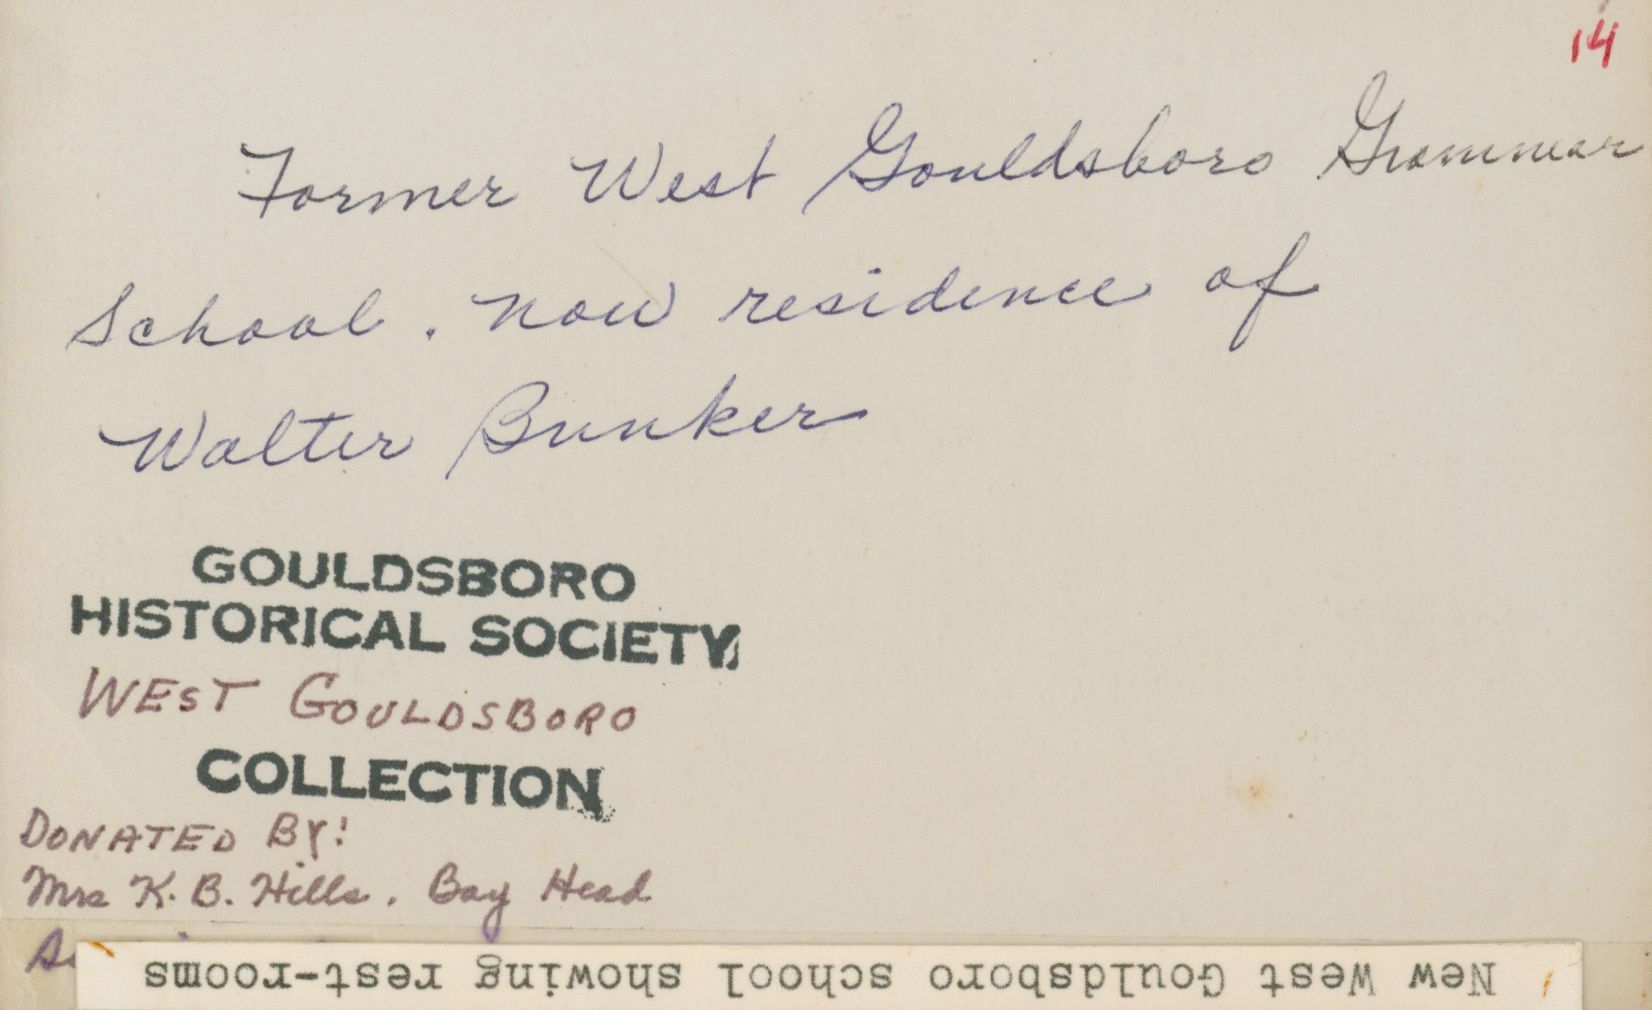 14
Former West Gouldsboro Grammar
School. now residence of
Walter Bunker
GOULDSBORO
HISTORICAL SOCIETY
WEST GOULDSBORO
COLLECTION
DONATED BY:
Mrs K. B. Hills. Bay Head
New West Gouldsboro school showing rest-rooms